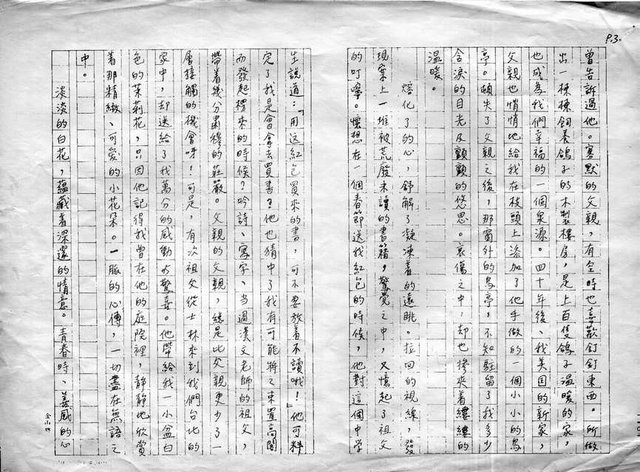 P.3.
曾告訴過他。寡默的父親,有空時也喜歡釘釘東西。所做
出一棟棟飼養鴿子的木製樓房,是上百隻鴿子溫暖的家,
也成為我們幸福的一個泉源。四十年後,我美國的新家,
父親也悄悄地給我在枝頭上添加了他手做的一個小小的鳥
亭。頓失了父親之後,那窗外的鳥亭,不知駐留了我多少
含淚的目光及顫顫的思。哀傷之中,却也摻夾着縷縷的
溫暖。
熔化了的心,舒解了凝凍着的遠眺。拉回的視線,發
現案上一堆被荒廢未讀的書籍,驚覺之中,又憶起了祖父
的叮嚀。懷想在一個春節送我紅包的時候,他對這個中學
生說道:「用這紅包買來的書,可不要放着不讀哦!」他可料
定了我是會拿去買書?他也猜中了我有可能將之束置高閣
而發起來的時候?吟詩、寫字、當過漢文老師的祖父,
帶着幾分肅穆的莊嚴。父親的父親,總是比父親更少了一
層接觸的機會呀!可是,有次祖父從士林來到我們台北的
家中,却送給了我萬分的感動與驚喜。他帶給我一小盆白
色的茉莉花,只因他記得我曾在他的庭院裡,靜靜地欣賞
着那精緻、可愛的小花朵。一脈的心傳,一切盡在無語之
中。
淡淡的白花,蘊藏着深遠的情意。青春時、美感的心